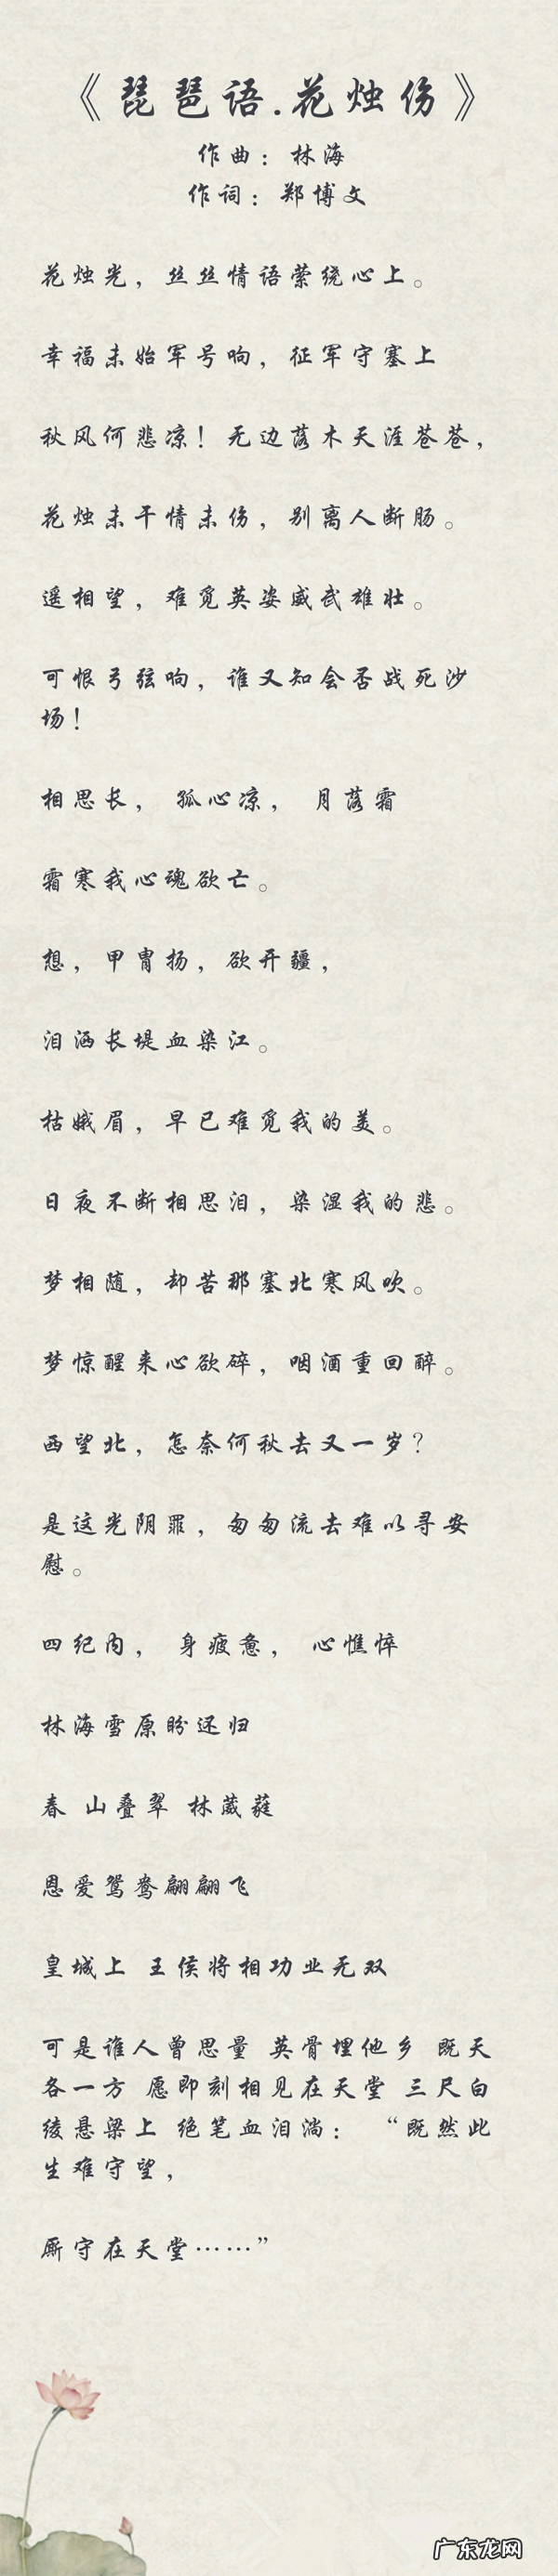 《琵琶语.花烛伤》
作曲：林海
作词：郑博文
花烛光，丝丝情语萦绕心上。
幸福未始军号响，征军守塞上
秋风何悲凉！无边落木天涯苍苍，
花烛未干情未伤，别离人断肠。
遥相望，难觅英姿威武雄壮。
可恨弓弦响，谁又知会否战死沙
场！
相思长， 孤心凉， 月落霜
霜寒我心魂欲亡。
想，甲胄扬，欲开疆，
泪洒长堤血染江。
枯娥眉，早已难觅我的美。
日夜不断相思泪，染湿我的悲。
梦相随，却苦那塞北寒风吹。
梦惊醒来心欲碎，咽酒重回醉。
西望北，怎奈何秋去又一岁？
是这光阴罪，匆匆流去难以寻安
慰。
四纪内， 身疲惫， 心憔悴
林海雪原盼还归
春 山叠翠 林葳蕤
恩爱鸳鸯翩翩飞
皇城上 王侯将相功业无双
可是谁人曾思量 英骨埋他乡 既天
各一方 愿即刻相见在天堂 三尺白
绫悬梁上 绝笔血泪淌： “既然此
生难守望，
厮守在天堂……”
广东龙网